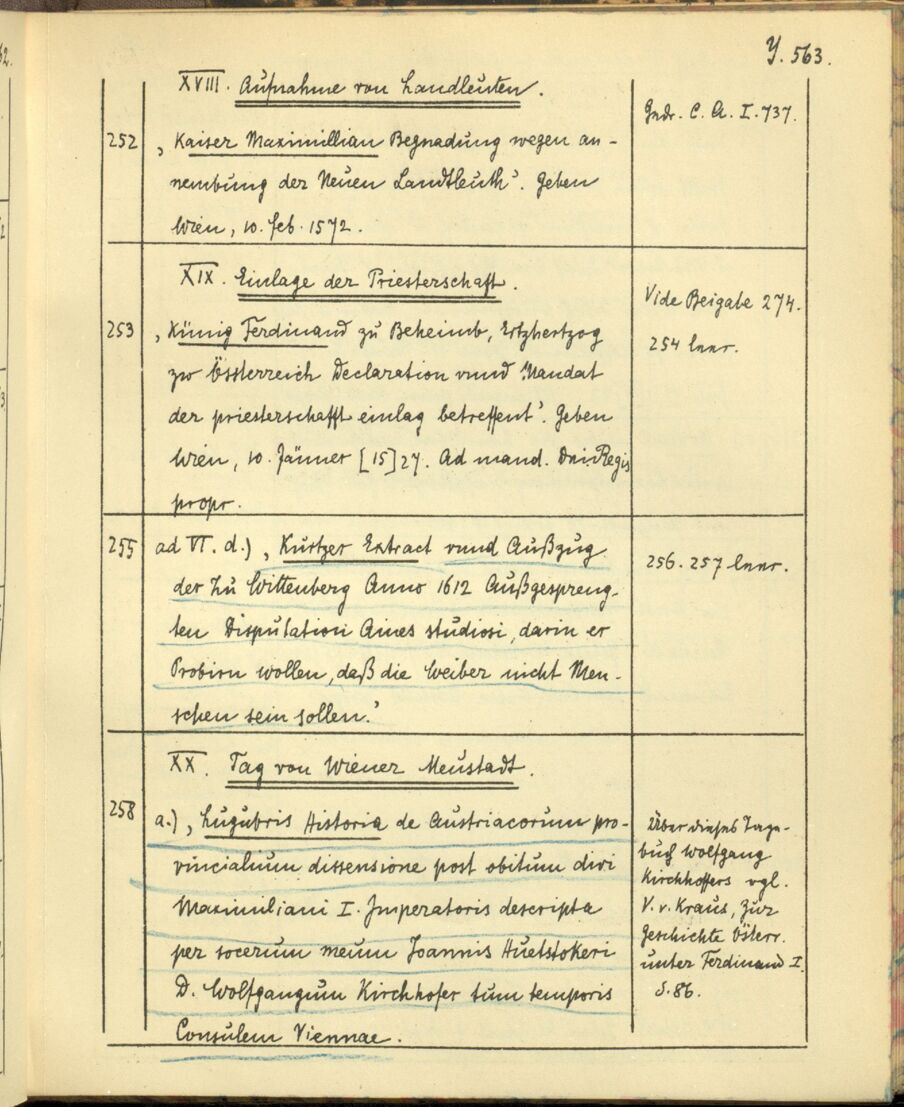 Y. 563.
XVIII. Aufnahme von Landleuten.
Gedr. C. A. I. 737.
252 „Kaiser Maximillian Begnadung wegen an-
nembung der Neuen Landtleuth‘. Geben
Wien, 10. Feb. 1572.
XIX. Einlage der Priesterschaft.
Vide Beigabe 274.
254 leer.
253 „Künig Ferdinand zu Beheimb, Ertzhertzog
zw Össterreich Declaration vnnd Mandat
der priesterschafft einlag betreffent‘. Geben
Wien, 10. Jänner [15]27. Ad mand. Dni Regis
propr.
255 ad VI. d.) „Kurtzer Extract vnnd Außzug
der Zu Wittenberg Anno 1612 Außgespreng-
ten Disputation Aines studiosi, darin er
Probirn wollen, daß die Weiber nicht Men-
schen sein sollen.‘
256. 257 leer.
XX. Tag von Wiener Neustadt.
258 a.) „Lugubris Historia de Austriacorum pro-
vincialium dissensione post obitum divi
Maximiliani I. Imperatoris descripta
per socerum meum Joannis Huetstokeri
D. Wolfgangum Kirchhofer tum temporis
Consulem Viennae.
Über dieses Tage-
buch Wolfgang
Kirchhoffers vgl.
V. v. Kraus, Zur
Geschichte Österr.
unter Ferdinand I.
S. 86.